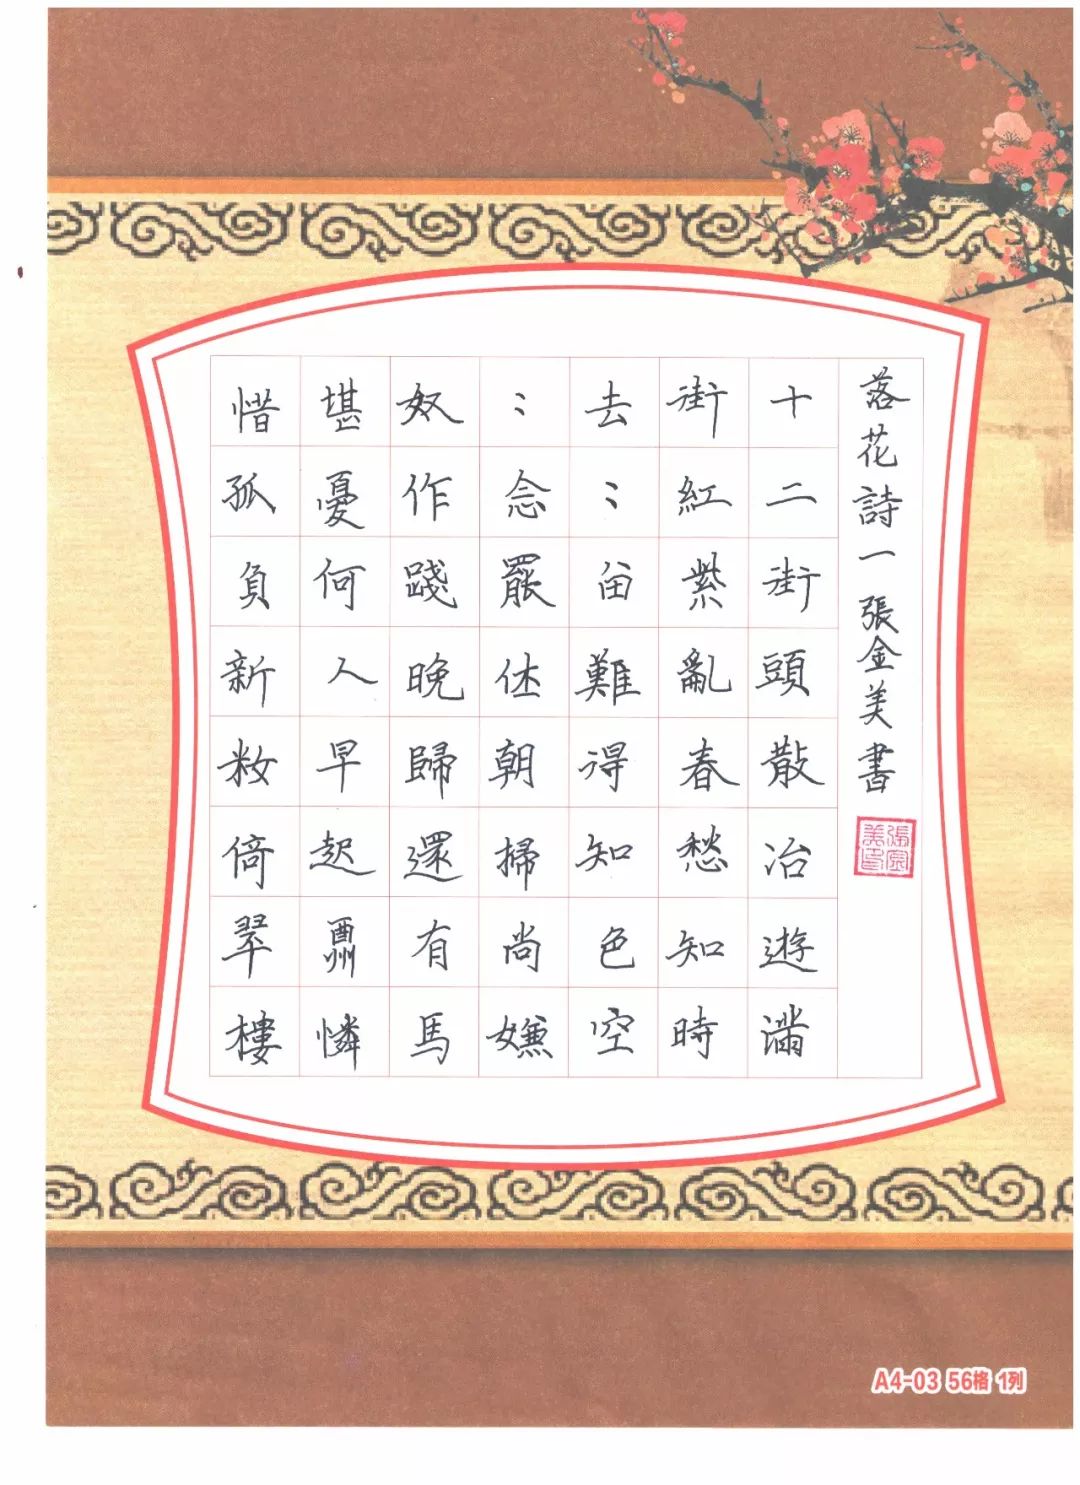 落花詩一 張金美書
張金美印
十二街頭散冶遊滿
街紅紫亂春愁知時
去：：留難得知色空
：念罷休朝掃尚嫌
奴作踐晚歸還有馬
堪憂何人早起酬憐
惜孤負新籹倚翠樓
A4-03 56格 1列